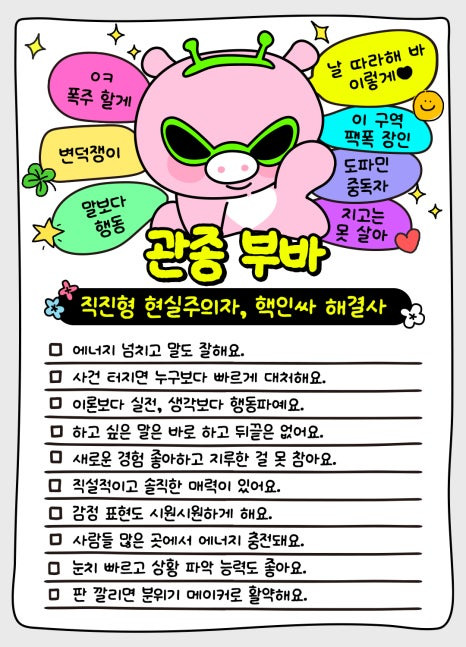 ㅇㅋ
폭주 할게
변덕쟁이
말보다
행동
날 따라해 바
이렇게🖤
이 구역
팩폭 장인
도파민
중독자
지고는
못 살아
관종 부바
직진형 현실주의자, 핵인싸 해결사
에너지 넘치고 말도 잘해요.
사건 터지면 누구보다 빠르게 대처해요.
이론보다 실전, 생각보다 행동파예요.
하고 싶은 말은 바로 하고 뒤끝은 없어요.
새로운 경험 좋아하고 지루한 걸 못 참아요.
직설적이고 솔직한 매력이 있어요.
감정 표현도 시원시원하게 해요.
사람들 많은 곳에서 에너지 충전돼요.
눈치 빠르고 상황 파악 능력도 좋아요.
판 깔리면 분위기 메이커로 활약해요.